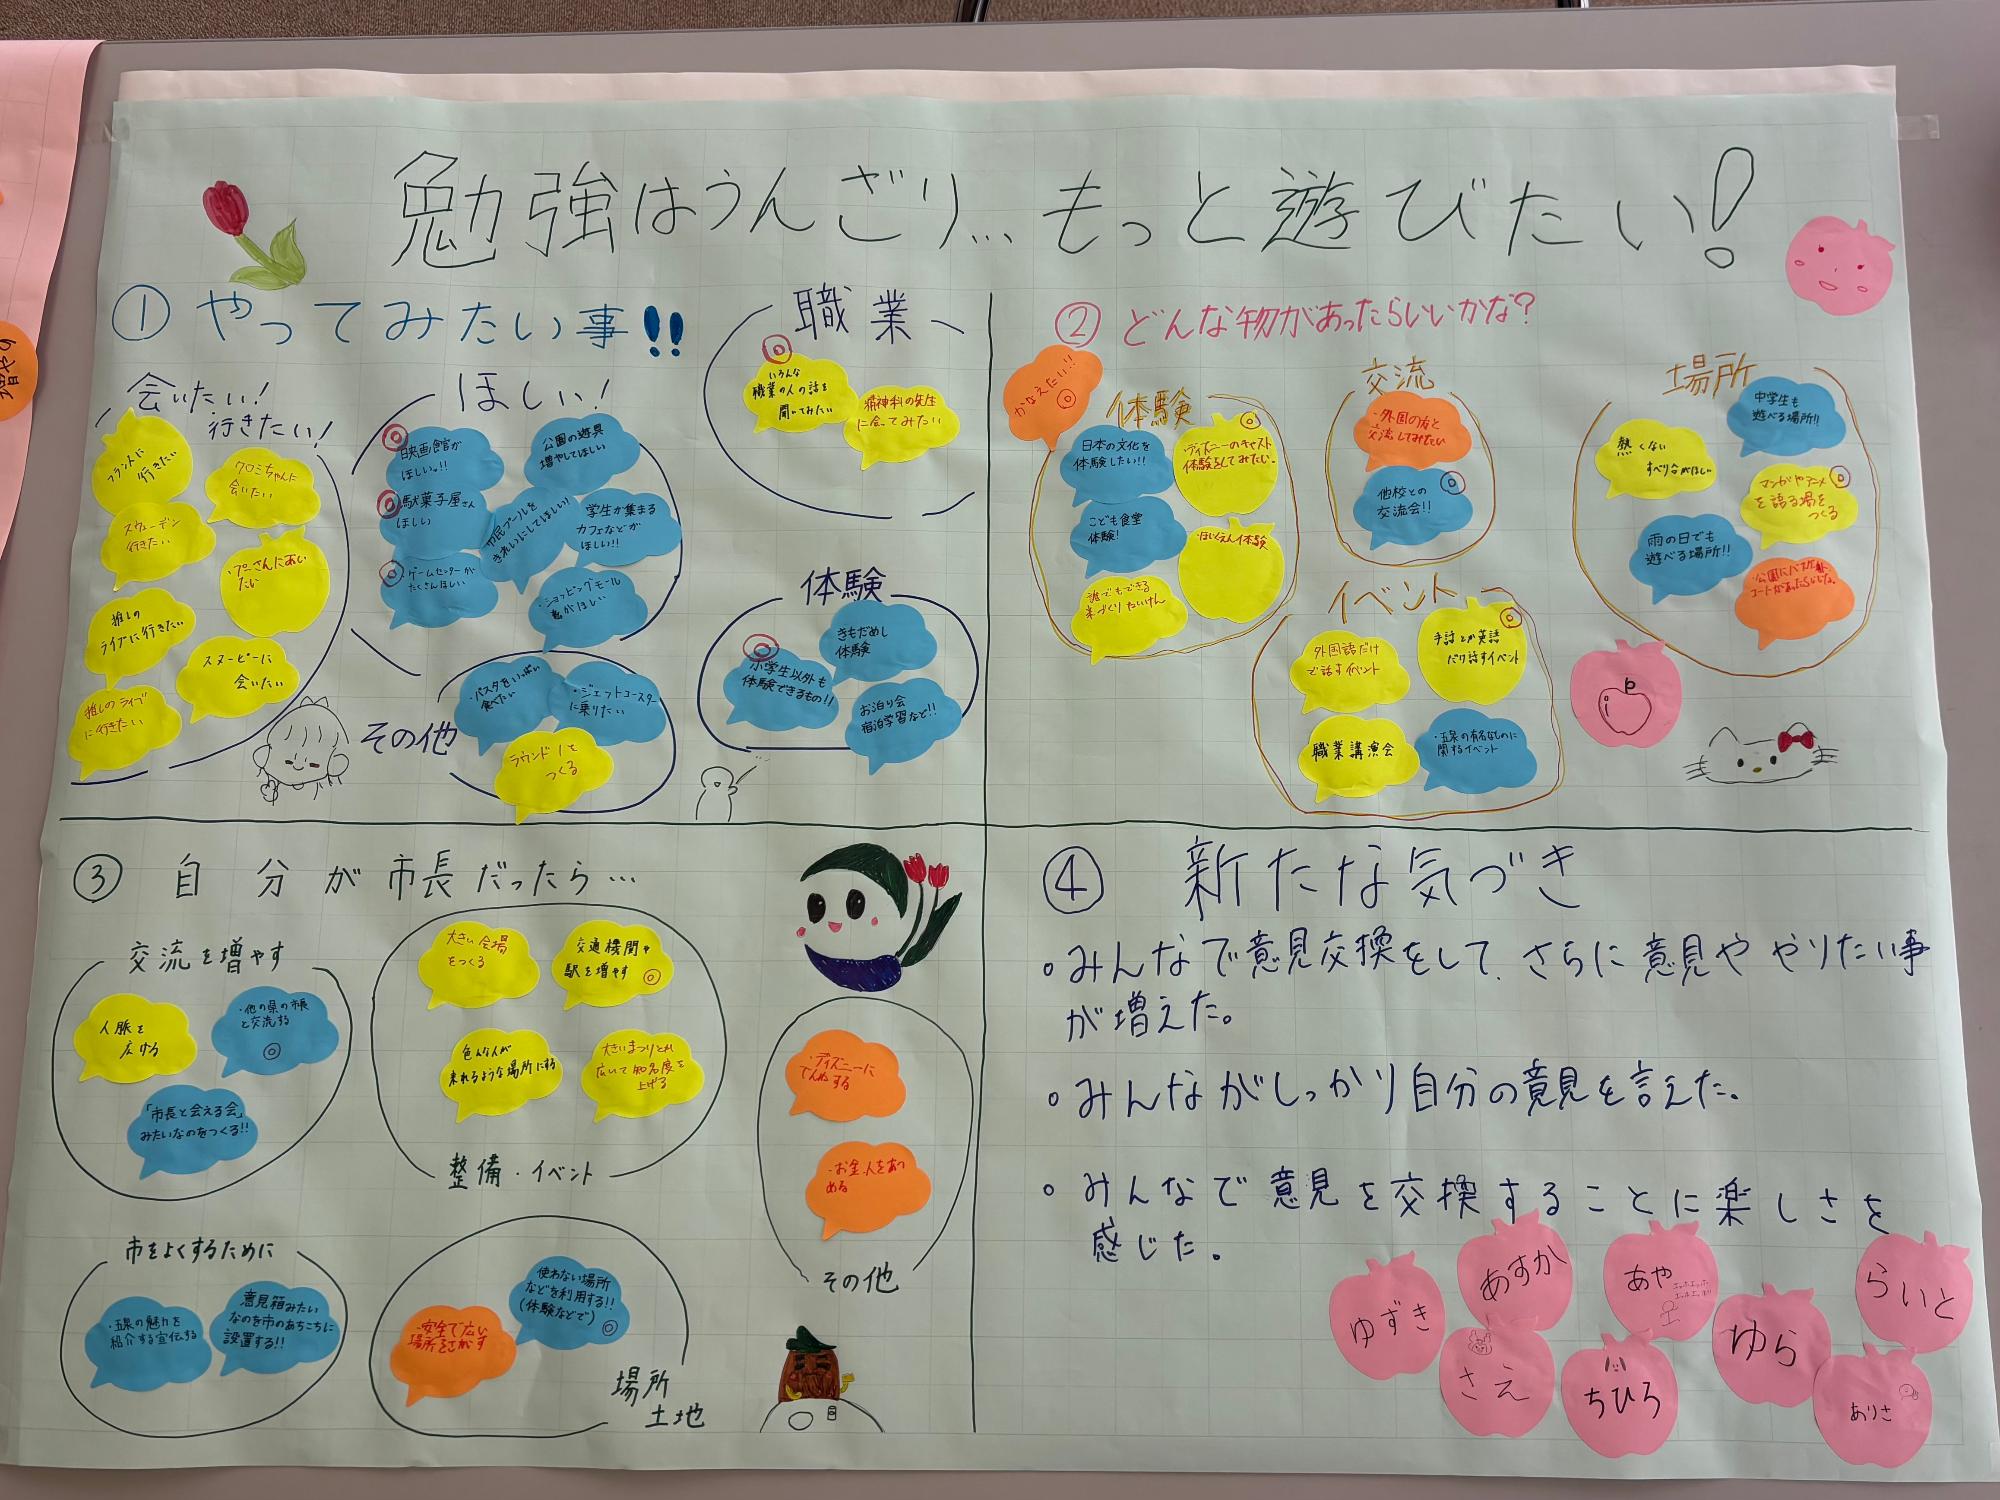 勉強はうんざり…もっと遊びたい!
① やってみたい事!!
会いたい!
行きたい!
フランスに
行きたい
クロミちゃんに
会いたい
スウェーデン
行きたい
・プーさんにあい
たい
推しの
ライブに行きたい
スヌーピーに
会いたい
推しのライブ
に行きたい
ほしい!
映画館が
ほしい。!!
公園の遊具
増やしてほしい
駄菓子屋さん
ほしい
市民プールを
きれいにしてほしい!
学生が集まる
カフェなどが
ほしい!!
・ゲームセンターが
たくさんほしい
・ショッピングモール
がほしい
その他
・パスタをいっぱい
食べたい
・ジェットコースター
に乗りたい
ラウンド1を
つくる
職業
いろんな
職業の人の話を
聞いてみたい
精神科の先生
に会ってみたい
体験
きもだめし
体験
小学生以外も
体験できるもの!!
お泊り会
宿泊学習など!!
② どんな物があったらいいかな?
かなえたい!!
体験
日本の文化を
体験したい!!
・ディズニーのキャスト
体験をしてみたい。
こども食堂
体験!
・ほいくえん体験
誰でもできる
米づくりたいけん
交流
・外国の方と
交流してみたい
他校との
交流会!!
場所
中学生も
遊べる場所!!
熱くない
すべり台がほしい
マンガやアニメ
を語る場を
つくる
雨の日でも
遊べる場所!!
・公園にバスケット
コートがあったらいいな。
イベント
外国語だけ
で話すイベント
手話とか英語
だけ話すイベント
職業講演会
・五泉の有名なものに
関するイベント
③ 自分が市長だったら…
交流を増やす
人脈を
広げる
・他の県の市長
と交流する
「市長と会える会」
みたいなのをつくる!!
大きい会場
をつくる
交通機関や
駅を増やす
色んな人が
来れるような場所にする
大きいまつりとか
広いて知名度を
上げる
整備・イベント
・ディズニーに
でんわする
・お金、人をあつ
める
その他
市をよくするために
・五泉の魅力を
紹介する宣伝する
意見箱みたい
なのを市のあちこちに
設置する!!
使わない場所
などを利用する!!
(体験などで)
・安全で広い
場所をさがす
場所
土地
④ 新たな気づき
・みんなで意見交換をして、さらに意見ややりたい事
が増えた。
・みんながしっかり自分の意見を言えた。
・みんなで意見を交換することに楽しさを
感じた。
ゆずき
あすか
あや
らいと
さえ
ちひろ
ゆら
ありさ